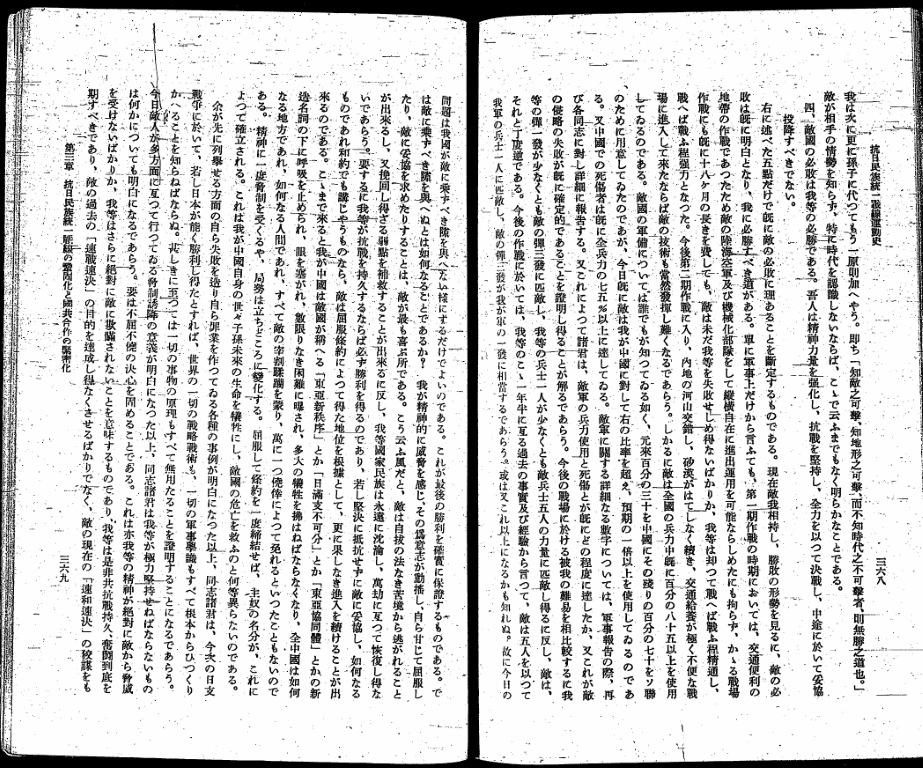 抗日民族統一戰線運動史
三六八
我は次に更に孫子に代つてもう一原則加へやう。即ち「知敵之可擊、知地形之可擊、而不知時代之不可擊者、則無勝之道也。」
敵が相手の情勢を知らず、特に時代を認識しないならば、こゝで云ふまでもなく明らかなことである。
四、敵國の必敗は我等の必勝である。吾人は精神力量を强化し、抗戰を堅持し、全力を以つて決戰し、中途に於いて妥協
投降すべきでない。
右に述べた五點だけで既に敵の必敗に理あることを斷定するものである。現在敵我相持し、勝敗の形勢を見るに、敵の必
敗は既に明白となり、我に必勝すべき道がある。單に軍事上だけから言ふても、第一期作戰の時期においては、交通便利の
地帶の作戰であつたため敵の陸海空軍及び機械化部隊をして縱橫自在に進出運用を可能ならしめたにも拘らず、かゝる戰場
作戰にも既に十八ケ月の長きを費しても、敵は未だ我等を失敗せしめ得ないばかりか、我等は却つて戰へば戰ふ程精通し、
戰へば戰ふ程强力となつた。今後第二期作戰に入り、內地の河山交錯し、砂漠がはてしなく續き、交通給養が極く不便な戰
場に進入して來たならば敵の技術も當然發揮し難くなるであらう。しかるに敵は全國の兵力中既に百分の八十五以上を使用
してゐるのである。敵國の軍備については誰でもが知つてゐる如く、元來百分の三十を中國にその殘りの百分の七十をソ聯
のために用意してゐたのであるが、今日既に敵は我が中國に對して右の比率を超え、預期の一倍以上を使用してゐるのであ
る。又中國での死傷者は既に全兵力の七五%以上に達してゐる。敵軍に關する詳細なる數字については、軍事報告の際、再
び各同志に對し詳細に報告する。又これによつて諸君は、敵軍の兵力使用と死傷とが既にどの程度に達したか、又これが敵
の侵略の失敗が既に確定的であることを證明し得ることが解るであらう。今後の戰場に於ける彼我の難易を相比較するに我
等の彈一發が少なくとも敵の彈三發に匹敵し、我等の兵士一人が少なくとも敵兵士五人の力量に匹敵し得るに反し、敵は、
それと丁度逆である。今後の作戰に於いては、我等のこゝ一年半に亙る過去の事實及び經驗から言つて、敵は五人を以つて
我軍の兵士一人に匹敵し、敵の彈三發が我が軍の一發に相當するであらう。或は又これ以上になるかも知れぬ。故に今日の
問題は我國が敵に乘ずべき隙を與へない樣にするだけでいいのである。これが最後の勝利を確實に保證するものである。で
は敵に乘ずべき隙を與へぬとは如何なることであるか？　我が精神的に威脅を感じ、その爲意志が動搖し、自ら甘じて屈服し
たり、敵に妥協を求めたりすることは、敵が最も喜ぶ所である。こう云ふ風だと、敵は自拔の法なき苦境から逃がれること
が出來るし、又挽回し得ざる弱點を補救することが出來るに反し、我等國家民族は永遠に沈淪し、萬劫に互つて恢復し得な
いであらう。要するに我等が抗戰を持久するならば必ず勝利を得るのであり、若し堅決に抵抗せず中に敵に妥協し、如何なる
ものであれ和約でも講じやうものなら、敵は屈服條約によつて得た地位を根據として、更に果しなき進入を續けることが出
來るのである。こゝまで來ると我が中國は敵國が稱へる「東亞新秩序」とか「日滿支不可分」とか「東亞協同體」とかの新
造名詞の下に呼吸を止められ、眼を塞がれ、數限りなき困難に曝され、多大の犧牲を拂はねばならなくなり、全中國は如何
なる地方であれ、如何なる人間であれ、すべて敵の宰割蹂躪を蒙り、萬に一つ僥倖によつて免れるといつたともないので
ある。精神に一度脅制を受くるや、局勢は立ちどころに變化する。屈服して條約を一度締結せば、主奴の名分が、これに
よつて確立される。これは我が中國自身の世々子孫未來の生命を犧牲にし、敵國の危亡を救ふのと何等異らないのである。
余が先に列擧せる方面の自ら失敗を造り自ら罪業を作つてゐる各種の事例が明白になつた以上、同志諸君は、今次の日支
戰爭に於いて、若し日本が能く勝利し得たとすれば、世界の一切の戰略戰術も、一切の軍事學識もすべて根本からひつくり
かへることを知らねばならぬ。甚しきに至つては一切の事物の原理もすべて無用たることを證明することになるであらう。
今日敵人が多方面に互つて行つてゐる脅制誘降の意義が明白になつた以上、同志諸君は我等が極力堅持せねばならないもの
は何かについても明白になるであらう。要は不屈不撓の決心を固めることである。これは亦我等の精神が絕對に敵から脅威
を受けないばかりか、我等はさらに絕對に敵に欺瞞されないことを意味するものであり、我等は是非共抗戰持久、奮鬪到底を
期すべきであり、敵の過去の「速戰速決」の目的を達成し得なくさせるばかりでなく、敵の現在の「速和速決」の秘謀をも
第三章　抗日民族統一戰線の鞏固化と國共合作の緊密化
三六九